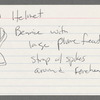 Helmet
Beanie with
large plume fea
Strap of spikes
around forehea